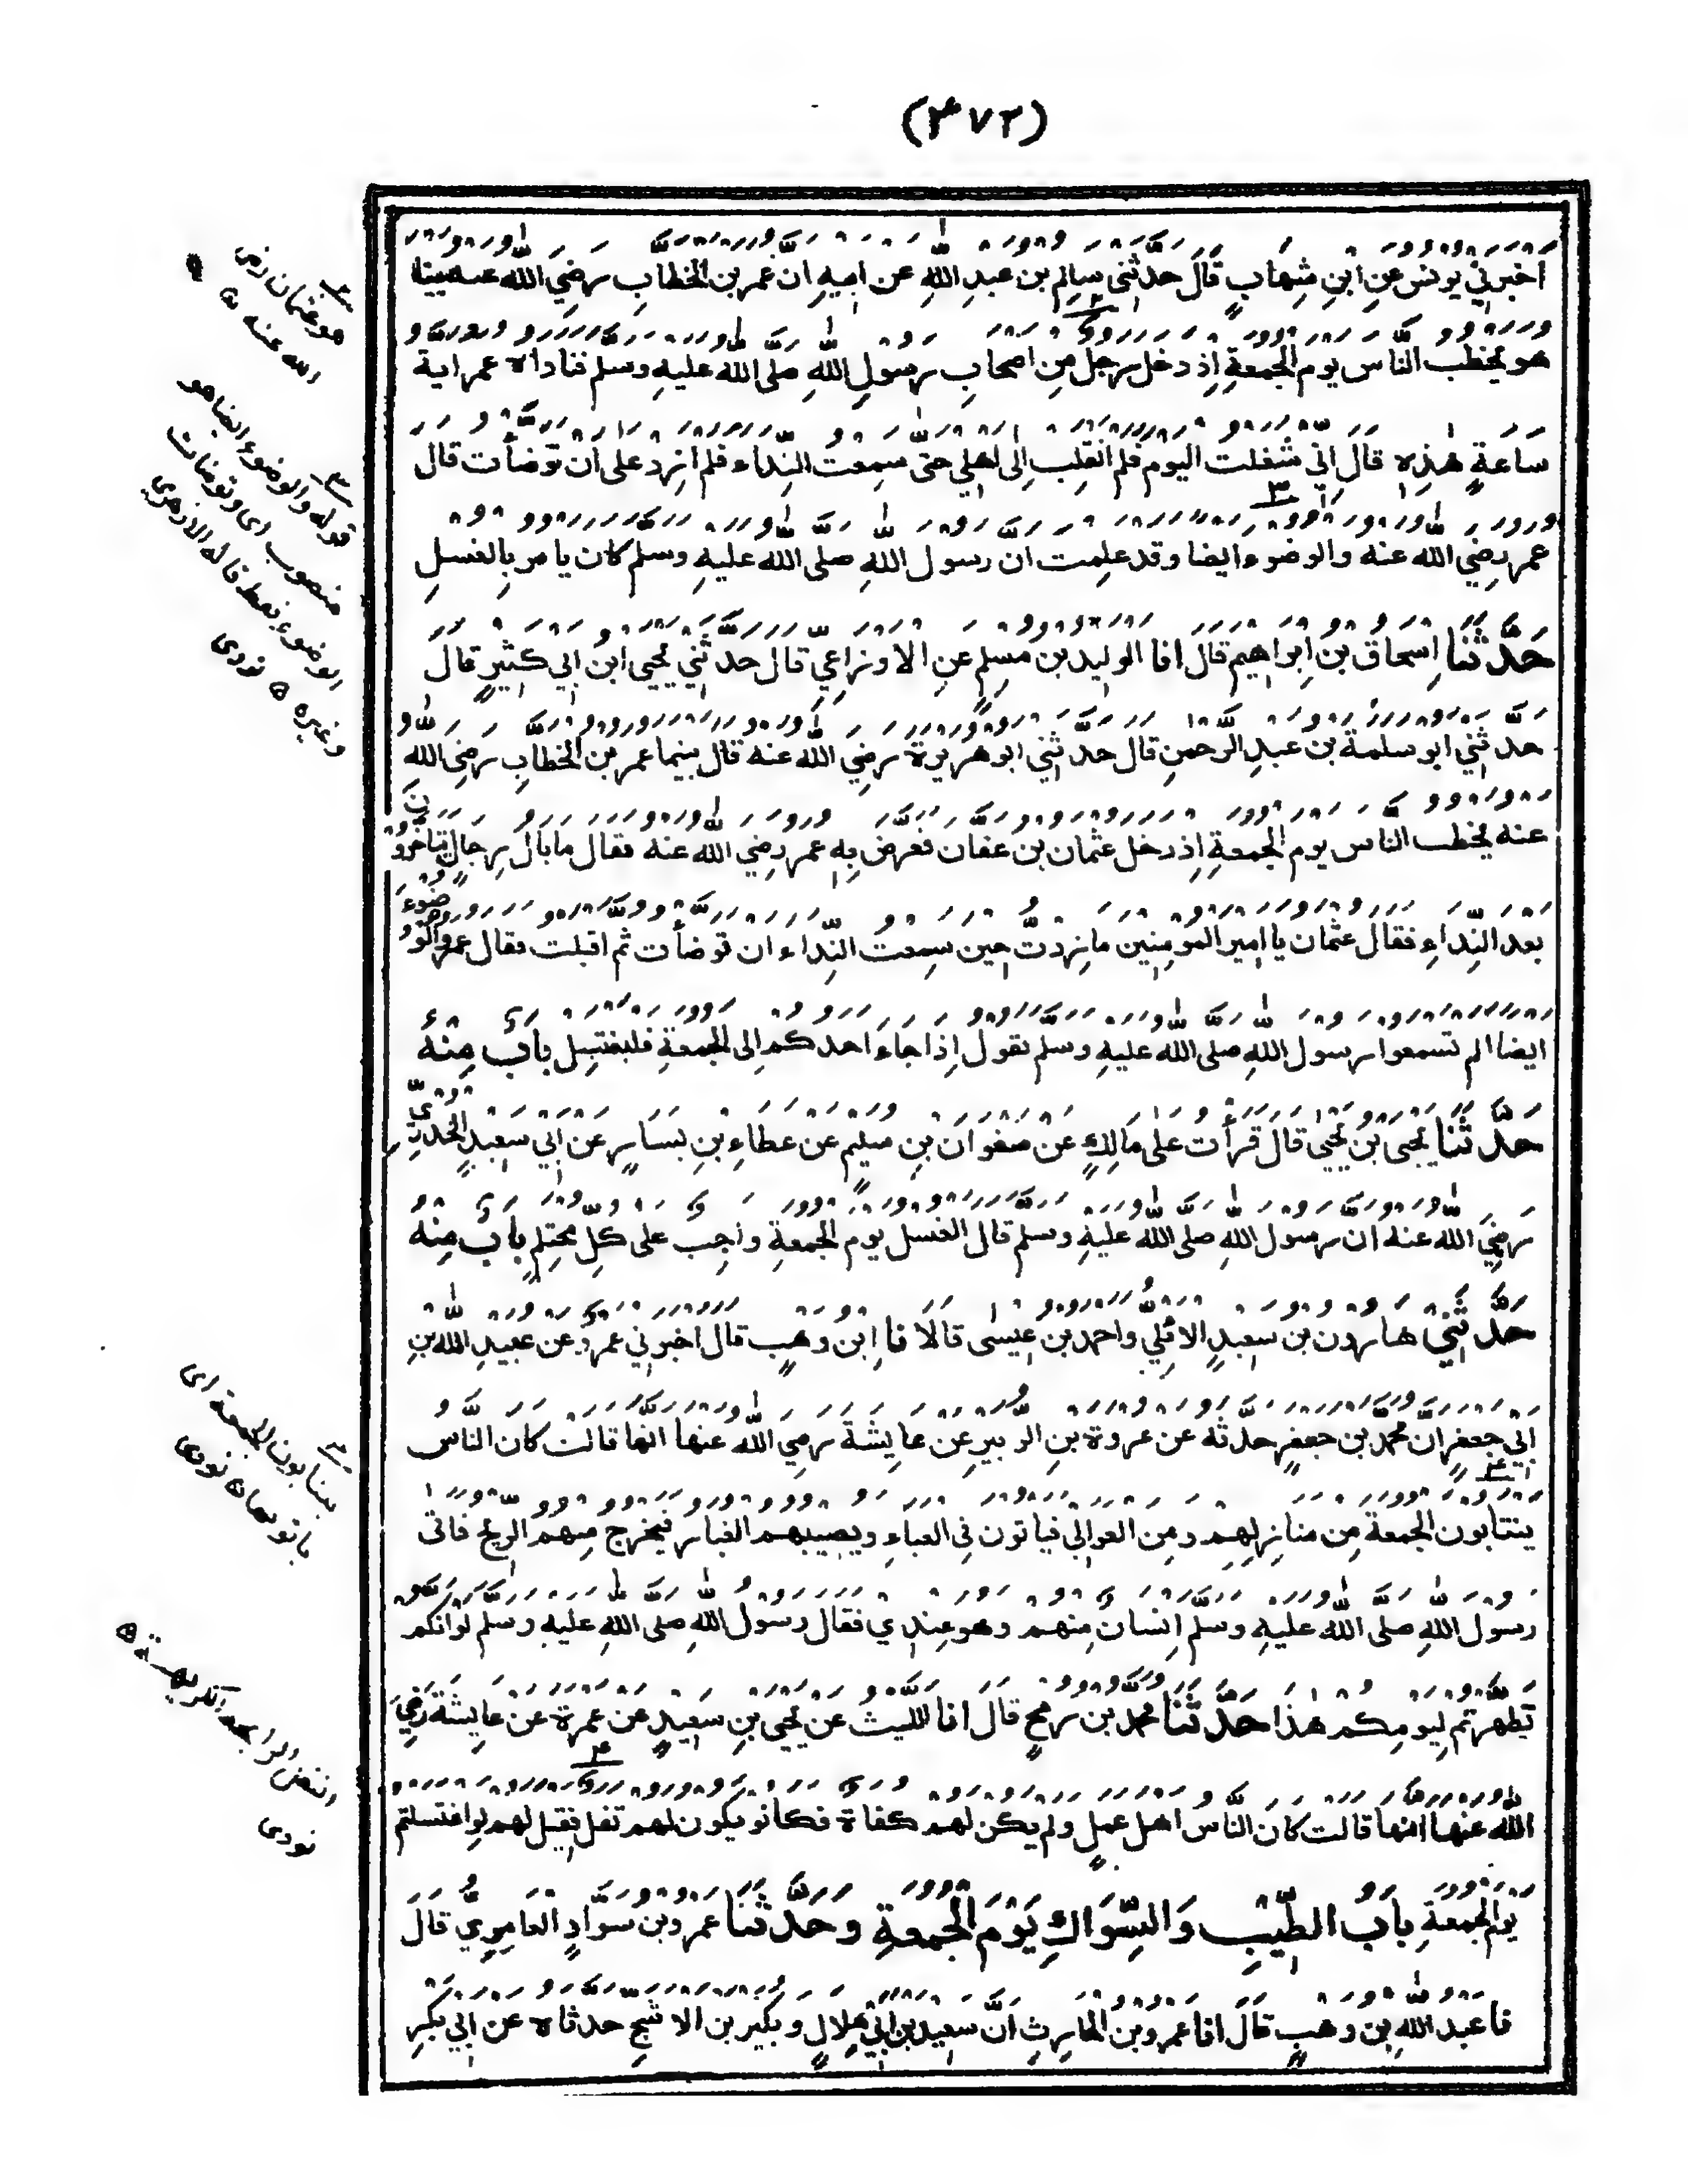 (٤٧٢)
اخبرني يونس عن ابن شهاب قال حدثني سالم بن عبد الله عن ابيه ان عمر بن الخطاب رضي الله عنه بينا
هو يخطب الناس يوم الجمعة اذ دخل رجل من اصحاب رسول الله صلى الله عليه وسلم فناداه عمر اية
ساعة هذه قال اني شغلت اليوم فلم انقلب الى اهلي حتى سمعت النداء فلم ازد على ان توضأت قال
عمر رضي الله عنه والوضوء ايضا وقد علمت ان رسول الله صلى الله عليه وسلم كان يامر بالغسل
حدثنا اسحاق بن ابراهيم قال انا الوليد بن مسلم عن الاوزاعي قال حدثني يحيى ابن ابي كثير قال
حدثني ابو سلمة بن عبد الرحمن قال حدثني ابو هريرة رضي الله عنه قال بينما عمر بن الخطاب رضي الله
عنه يخطب الناس يوم الجمعة اذ دخل عثمان بن عفان فعرض به عمر رضي الله عنه فقال ما بال رجال يتاخرون
بعد النداء فقال عثمان يا امير المومنين ما زدت حين سمعت النداء ان توضأت ثم اقبلت فقال عمر والوضوء
ايضا الم تسمعوا رسول الله صلى الله عليه وسلم يقول اذا جاء احدكم الى الجمعة فليغتسل باب منه
حدثنا يحيى بن يحيى قال قرأت على مالك عن صفوان بن سليم عن عطاء بن يسار عن ابي سعيد الخدري
رضي الله عنه ان رسول الله صلى الله عليه وسلم قال الغسل يوم الجمعة واجب على كل محتلم باب منه
حدثني هارون بن سعيد الايلي واحمد بن عيسى قالا نا ابن وهب قال اخبرني عمرو عن عبيد الله بن
ابي جعفر ان محمد بن جعفر حدثه عن عروة بن الزبير عن عايشة رضي الله عنها انها قالت كان الناس
ينتابون الجمعة من منازلهم ومن العوالي فياتون في العباء ويصيبهم الغبار فيخرج منهم الريح فاتى
رسول الله صلى الله عليه وسلم انسان منهم وهو عندي فقال رسول الله صلى الله عليه وسلم لو انكم
تطهرتم ليومكم هذا حدثنا محمد بن رمح قال انا الليث عن يحيى بن سعيد عن عمرة عن عايشة رضي
الله عنها انها قالت كان الناس اهل عمل ولم يكن لهم كفاة فكانو يكون لهم تفل فقيل لهم لو اغتسلتم
يوم الجمعة باب الطيب والسواك يوم الجمعة وحدثنا عمرو بن سواد العامري قال
نا عبد الله بن وهب قال انا عمرو بن الحارث ان سعيد بن ابي هلال وبكير بن الاشج حدثاه عن ابي بكر
هو عثمان رضي
الله عنه
قوله والوضوء ايضا هو
منصوب اى وتوضات
الوضوء فقط قاله الازهري
وغيره نووى
ينتابون الجمعة اى
ياتونها نووى
التفل الرايحة الكريهة
نووى